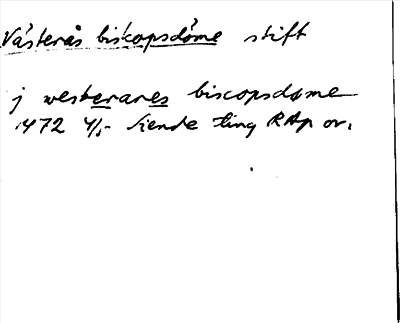 Västerås biskopsdöme stift
j westerares biscopsdøme
1472 4/5 Kiende ting RAp or.